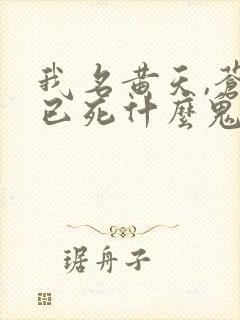 我名黄天,蒼
已死什麼鬼
琚舟子